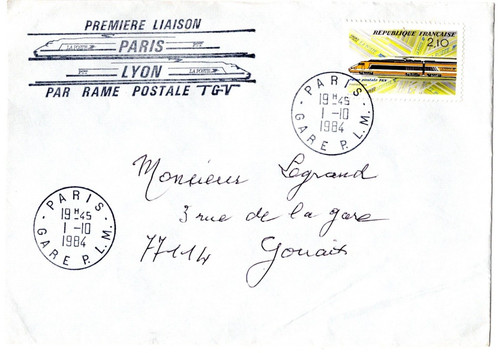 PREMIERE LIAISON
LA POSTE PTT
PARIS
PTT LA POSTE
LYON
PAR RAME POSTALE "TGV"
REPUBLIQUE FRANÇAISE
2,10
PARIS
19 H 45
1 -10
1984
GARE P.L.M.
Monsieur Legrand
3 rue de la gare
77114 Gouaix
PARIS
19 H 45
1 -10
1984
GARE P.L.M.